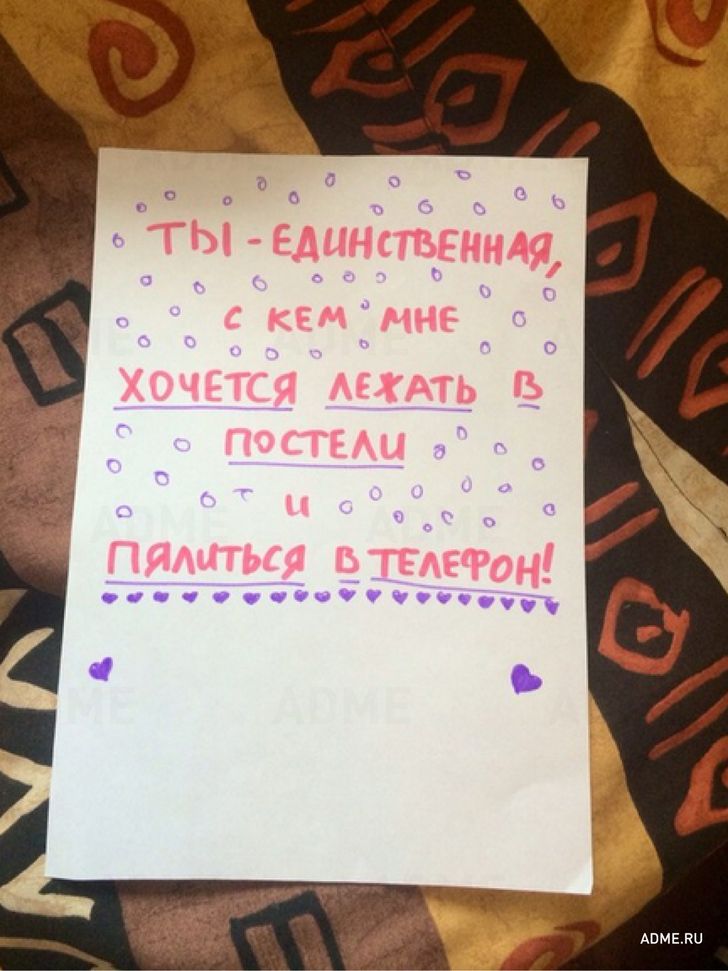 ТЫ - ЕДИНСТВЕННАЯ,
С КЕМ МНЕ
ХОЧЕТСЯ ЛЕЖАТЬ В
ПОСТЕЛИ
И
ПЯЛИТЬСЯ В ТЕЛЕФОН!
ADME
ADME
ADME
ADME.RU